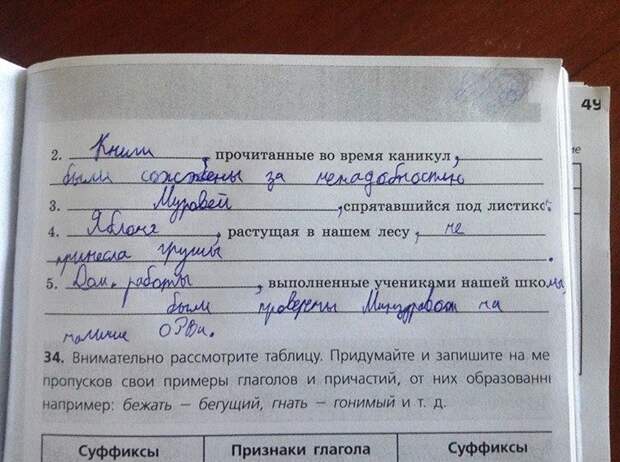 49
2. Книги, прочитанные во время каникул,
были сожжены за ненадобностью
3. Муровей, спрятавшийся под листико
4. Яблоня, растущая в нашем лесу, не
принесла грушы.
5. Дом. работы, выполненные учениками нашей школы,
были проверены Минздравом на
наличие ОРВи.
34. Внимательно рассмотрите таблицу. Придумайте и запишите на ме
пропусков свои примеры глаголов и причастий, от них образованн
например: бежать – бегущий, гнать – гонимый и т. д.
Суффиксы Признаки глагола Суффиксы